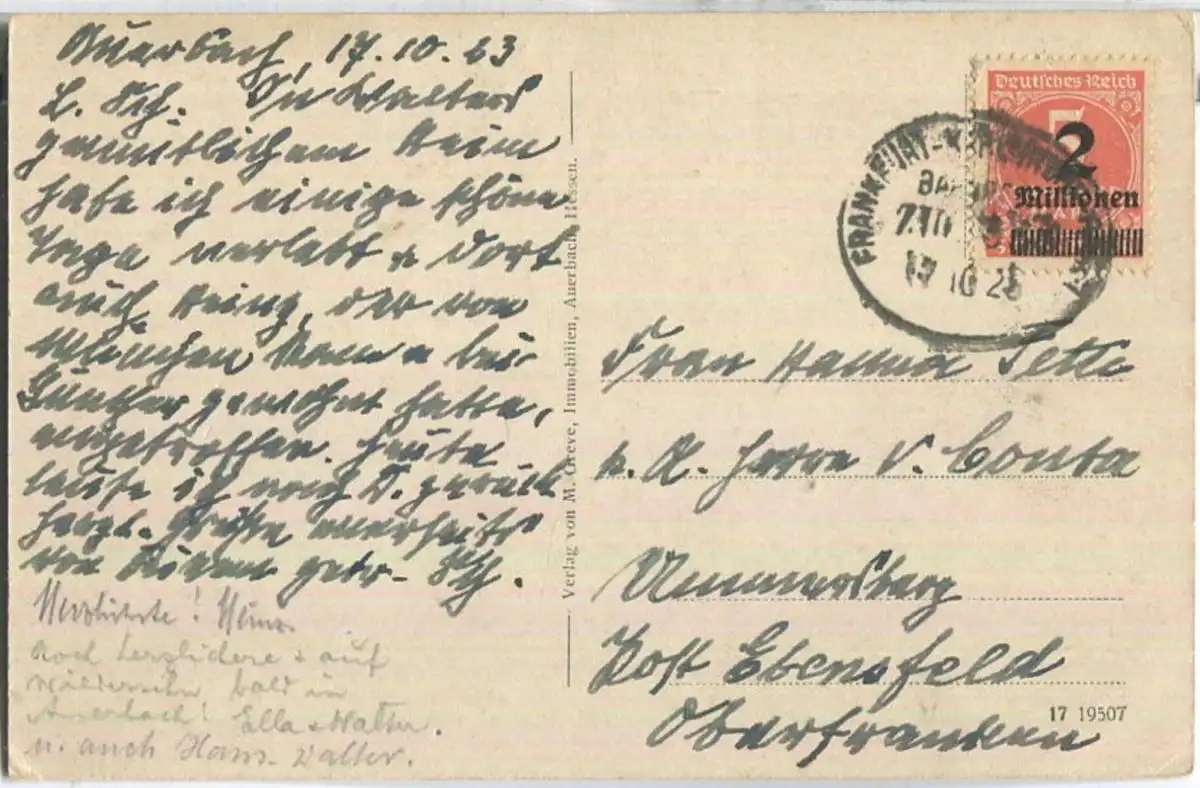 Auerbach, 17.10.23
L. Sch. In Walters
gemütlichem Heim
habe ich einige schöne
Tage verlebt u dort
auch Heinz, der von
München kam u bei
Günther gewohnt hatte,
angetroffen. Heute
ich nach D. zurück
herzl. Grüße allerseits
von Deinem getr. Sch.
Herzlichste! Heinz.
Noch herzlichere + auf
Wiedersehn bald in
Auerbach! Ella + Walter.
u. auch Hans Walter.
Verlag von M. Greve, Immobilien, Auerbach, Hessen.
Deutsches Reich
2
Millionen
FRANKFURT-
ZUG
17 10 23
Frau Hanna Tette
p. A. Herrn v. Conta
Ummersberg
Post Ebensfeld
Oberfranken
17 19507